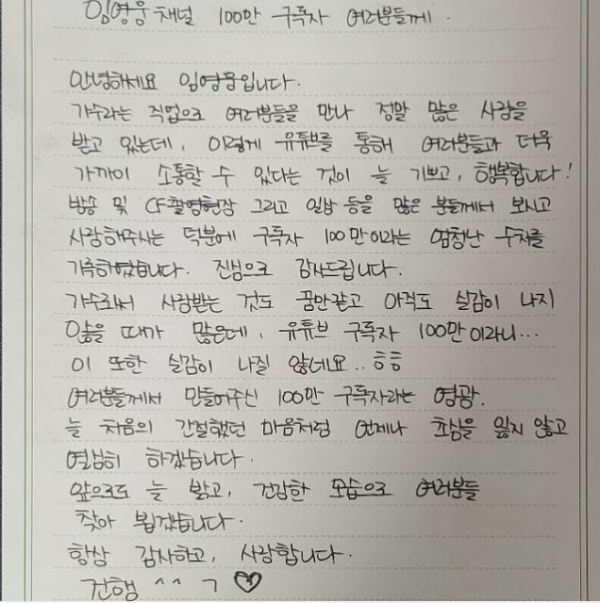 임영웅 채널 100만 구독자 여러분들께.
안녕하세요 임영웅입니다.
가수라는 직업으로 여러분들을 만나 정말 많은 사랑을
받고 있는데, 이렇게 유튜브를 통해 여러분들과 더욱
가까이 소통할 수 있다는 것이 늘 기쁘고, 행복합니다!
방송 및 CF촬영현장 그리고 일상 등을 많은 분들께서 보시고
사랑해주시는 덕분에 구독자 100만이라는 엄청난 숫자를
기록하였습니다. 진심으로 감사드립니다.
가수로서 사랑받는 것도 꿈만같고 아직도 실감이 나지
않을 때가 많은데, 유튜브 구독자 100만이라니...
이 또한 실감이 나질 않네요..ㅎㅎ
여러분들께서 만들어주신 100만 구독자라는 영광.
늘 처음의 간절했던 마음처럼 언제나 초심을 잃지 않고
열심히 하겠습니다.
앞으로도 늘 밝고, 건강한 모습으로 여러분들
찾아 뵙겠습니다.
항상 감사하고, 사랑합니다.
건행 ^^ ㄱ ♡